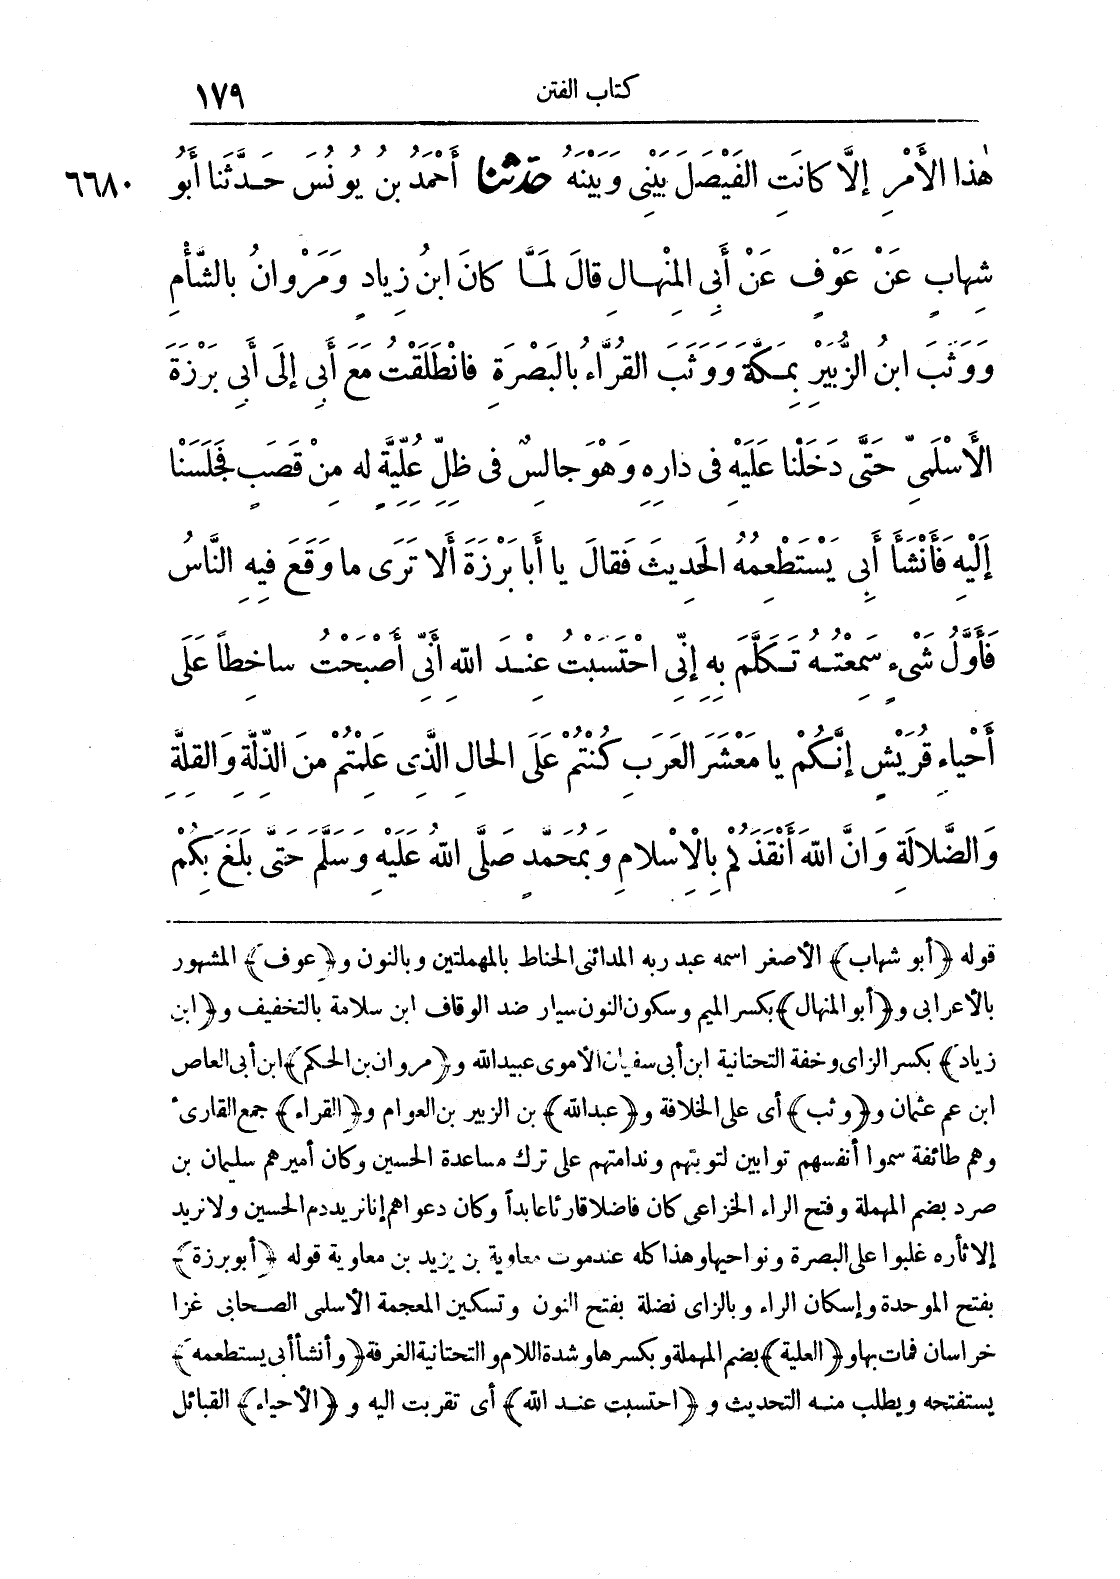 كتاب الفتن ١٧٩
هٰذا الأَمْرِ إلَّا كانَتِ الفَيْصَلَ بَيْنِى وَبَيْنَهُ حدّثنا أَحْمَدُ بن يُونُسَ حَدَّثَنا أَبُو ٦٦٨٠
شِهابٍ عَنْ عَوْفٍ عَنْ أَبِى المِنْهالِ قالَ لَمَّا كانَ ابنُ زِيادٍ وَمَرْوانُ بالشَّأْمِ
وَوَثَبَ ابنُ الزُّبَيْرِ بِمَكَّةَ وَوَثَبَ القُرَّاءُ بالبَصْرَةِ فانْطَلَقْتُ مَعَ أَبِى إلَى أَبِى بَرْزَةَ
الأَسْلَمِىِّ حَتَّى دَخَلْنا عَلَيْهِ فى دارِهِ وَهْوَ جالِسٌ فى ظِلِّ عُلِّيَّةٍ له مِنْ قَصَبٍ فَجَلَسْنا
إلَيْهِ فَأَنْشَأَ أَبِى يَسْتَطْعِمُهُ الحَدِيثَ فَقالَ يا أَبا بَرْزَةَ أَلا تَرَى ما وَقَعَ فِيهِ النَّاسُ
فَأَوَّلُ شَىْءٍ سَمِعْتُهُ تَكَلَّمَ بِهِ إنِّى احْتَسَبْتُ عِنْدَ اللّٰهِ أَنِّى أَصْبَحْتُ ساخِطاً عَلَى
أَحْياءِ قُرَيْشٍ إنَّكُمْ يا مَعْشَرَ العَرَبِ كُنْتُمْ عَلَى الحالِ الَّذِى عَلِمْتُمْ مِنَ الذِّلَّةِ وَالقِلَّةِ
وَالضَّلالَةِ وَانَّ اللّٰهَ أَنْقَذَكُمْ بِالْاِسْلامِ وَبِمُحَمَّدٍ صَلَّى اللّٰهُ عَلَيْهِ وَسَلَّمَ حَتَّى بَلَغَ بِكُمْ
قوله ﴿أبو شهاب﴾ الأصغر اسمه عبد ربه المدائنى الحناط بالمهملتين وبالنون و﴿عوف﴾ المشهور
بالأعرابى و﴿أبو المنهال﴾ بكسر الميم وسكون النون سيار ضد الوقاف ابن سلامة بالتخفيف و﴿ابن
زياد﴾ بكسر الزاى وخفة التحتانية ابن أبى سفيان الأموى عبيد الله و﴿مروان بن الحكم﴾ ابن أبى العاص
ابن عم عثمان و﴿وثب﴾ أى على الخلافة و﴿عبد الله﴾ بن الزبير بن العوام و﴿القراء﴾ جمع القارىء
وهم طائفة سموا أنفسهم توابين لتوبتهم وندامتهم على ترك مساعدة الحسين وكان أميرهم سليمان بن
صرد بضم المهملة وفتح الراء الخزاعى كان فاضلا قارئا عابداً وكان دعواهم إنا نريد دم الحسين ولا نريد
إلا ثأره غلبوا على البصرة ونواحيها وهذا كله عند موت معاوية بن يزيد بن معاوية قوله ﴿أبو برزة﴾
بفتح الموحدة وإسكان الراء وبالزاى نضلة بفتح النون وتسكين المعجمة الأسلمى الصحابى غزا
خراسان فمات بها و﴿العلية﴾ بضم المهملة وبكسرها وشدة اللام والتحتانية الغرفة ﴿وأنشأ أبى يستطعمه﴾
يستفتحه ويطلب منه التحديث و ﴿احتسبت عند الله﴾ أى تقربت اليه و ﴿الأحياء﴾ القبائل